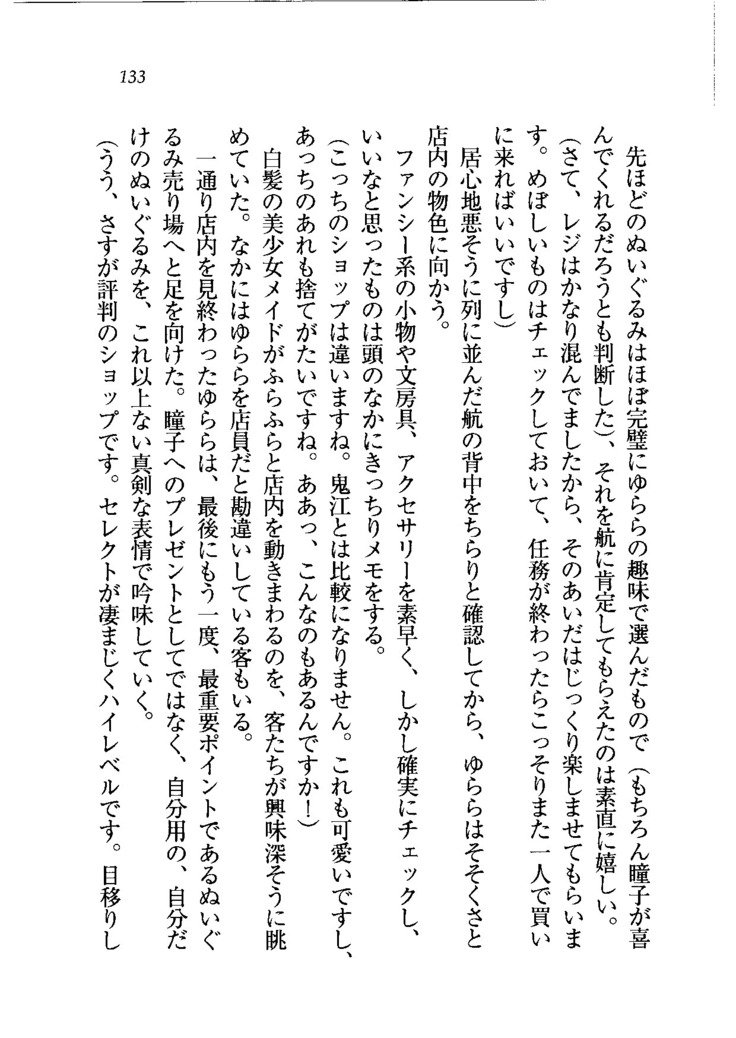 133
先ほどのぬいぐるみはほぼ完璧にゆららの趣味で選んだもので（もちろん瞳子が喜
んでくれるだろうとも判断した）、それを航に肯定してもらえたのは素直に嬉しい。
（さて、レジはかなり混んでましたから、そのあいだはじっくり楽しませてもらいま
す。めぼしいものはチェックしておいて、任務が終わったらこっそりまた一人で買い
に来ればいいですし）
居心地悪そうに列に並んだ航の背中をちらりと確認してから、ゆららはそそくさと
店内の物色に向かう。
ファンシー系の小物や文房具、アクセサリーを素早く、しかし確実にチェックし、
いいなと思ったものは頭のなかにきっちりメモをする。
（こっちのショップは違いますね。鬼江とは比較になりません。これも可愛いですし、
あっちのあれも捨てがたいですね。ああっ、こんなのもあるんですか！）
白髪の美少女メイドがふらふらと店内を動きまわるのを、客たちが興味深そうに眺
めていた。なかにはゆららを店員だと勘違いしている客もいる。
一通り店内を見終わったゆららは、最後にもう一度、最重要ポイントであるぬいぐ
るみ売り場へと足を向けた。瞳子へのプレゼントとしてではなく、自分用の、自分だ
けのぬいぐるみを、これ以上ない真剣な表情で吟味していく。
（うう、さすが評判のショップです。セレクトが凄まじくハイレベルです。目移りし